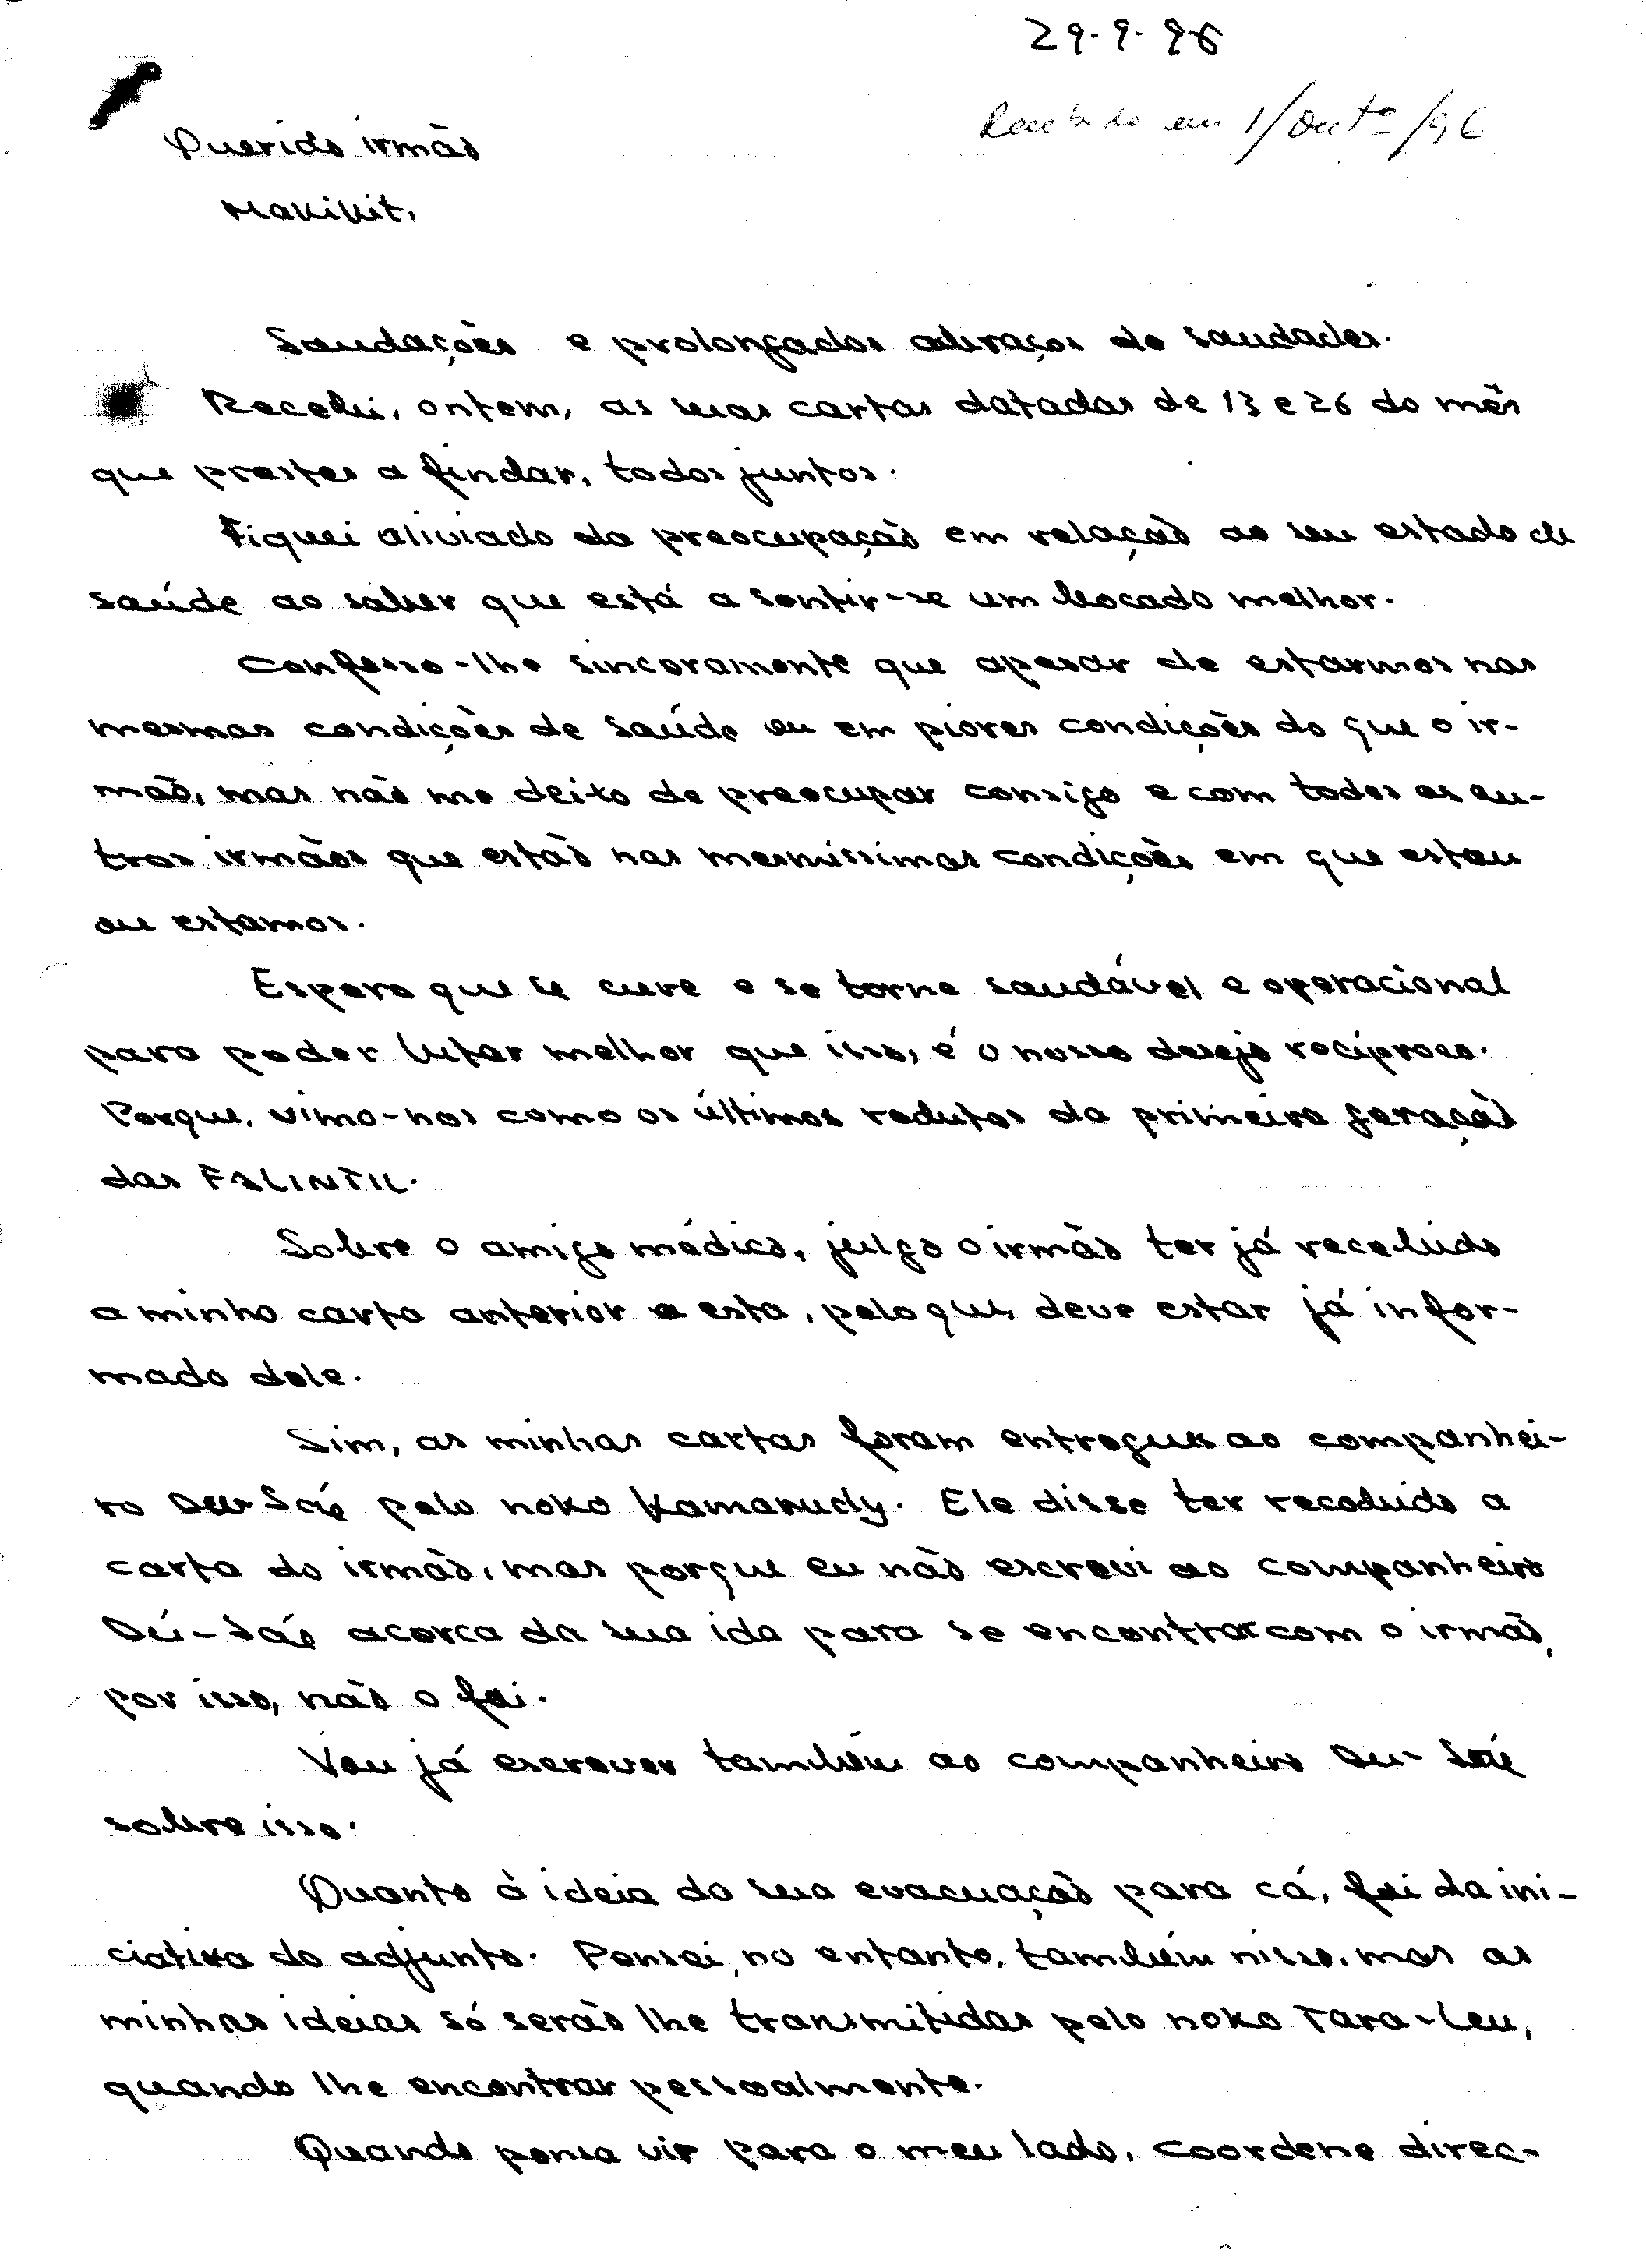 29-9-96
Recebido em 1/Outº/96
Querido irmão
Makikit,
Saudações e prolongados abraços de saudades.
Recebi, ontem, as suas cartas datadas de 13 e 26 do mês
que prestes a findar, todos juntos.
Fiquei aliviado da preocupação em relação ao seu estado de
saúde ao saber que está a sentir-se um bocado melhor.
Confesso-lhe sinceramente que apesar de estarmos nas
mesmas condições de saúde ou em piores condições do que o ir-
mão, mas não me deixo de preocupar consigo e com todos os ou-
tros irmãos que estão nas mesmíssimas condições em que estou
ou estamos.
Espero que se cure e se torne saudável e operacional
para poder lutar melhor que isso, é o nosso desejo recíproco.
Porque, vimo-nos como os últimos redutos da primeira geração
das FALINTIL.
Sobre o amigo médico, julgo o irmão ter já recebido
a minha carta anterior a esta, pelo que, deve estar já infor-
mado dele.
Sim, as minhas cartas foram entregues ao companhei-
ro pelo noko Kamarudy. Ele disse ter recebido a
carta do irmão, mas porque eu não escrevi ao companheiro
acerca da sua ida para se encontrar com o irmão,
por isso, não o foi.
Vou já escrever também ao companheiro
sobre isso.
Quanto à ideia da sua evacuação para cá, foi da ini-
ciativa do adjunto. Pensei, no entanto, também nisso, mas as
minhas ideias só serão lhe transmitidas pelo noko Tara-Leu,
quando lhe encontrar pessoalmente.
Quando pensa vir para o meu lado, coordene direc-